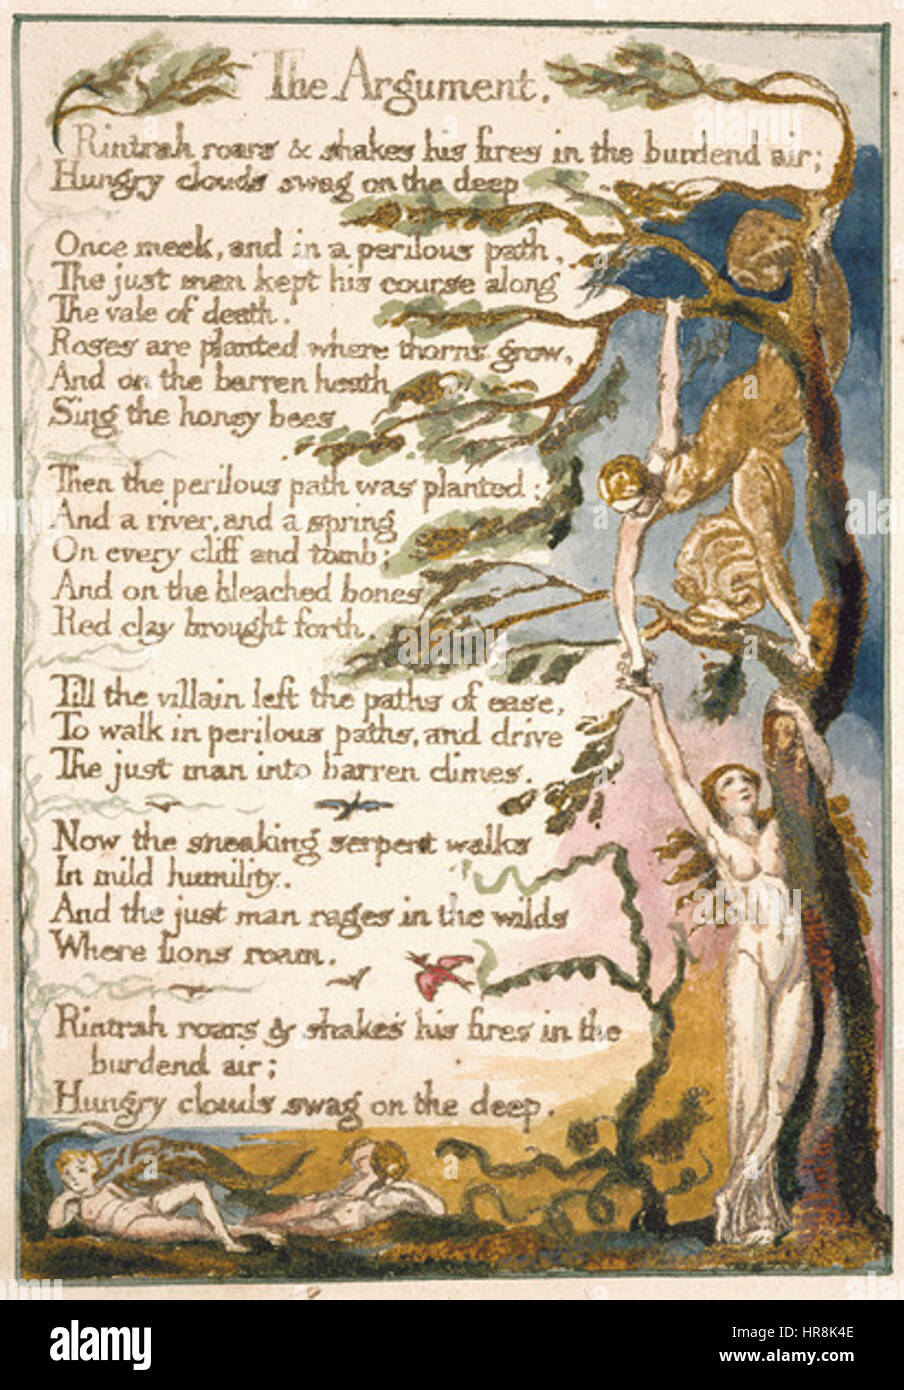 The Argument.
Rintrah roars & shakes his fires in the burdend air;
Hungry clouds swag on the deep
Once meek, and in a perilous path,
The just man kept his course along
The vale of death.
Roses are planted where thorns grow,
And on the barren heath
Sing the honey bees
Then the perilous path was planted:
And a river, and a spring
On every cliff and tomb;
And on the bleached bones
Red clay brought forth.
Till the villain left the paths of ease,
To walk in perilous paths, and drive
The just man into barren climes.
Now the sneaking serpent walks
In mild humility.
And the just man rages in the wilds
Where lions roam.
Rintrah roars & shakes his fires in the
burdend air;
Hungry clouds swag on the deep.
alamy stock photo
alamy
Image ID: HR8K4E
www.alamy.com